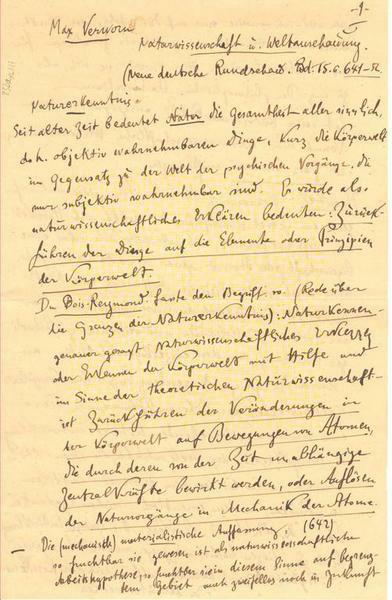 -1-
Max Verworn
Naturwissenschaft u. Weltanschauung.
(Neue deutsche Rundschau. Bd. 15. S. 641-52.
Naturerkenntnis.
Seit alter Zeit bedeutet Natur die Gesamtheit aller sinnlich,
d.h. objektiv wahrnehmbaren Dinge, kurz die Körperwelt
im Gegensatz zu der Welt der psychischen Vorgänge, die
nur subjektiv wahrnehmbar sind. Es würde also
naturwissenschaftliches Erklären bedeuten: Zurück-
führen der Dinge auf die Elemente oder Prinzipien
der Körperwelt.
Du Bois-Reymond faste den Begriff so (Rede über
die Grenzen der Naturerkenntnis): Naturerkennen-
genauer gesagt naturwissenschaftliches
oder Erkennen der Körperwelt mit Hilfe und
im Sinne der theoretischen Naturwissenschaft-
ist Zurückführen der Veränderungen in
der Körperwelt auf Bewegungen von Atomen,
die durch deren von der Zeit unabhängige
Zentralkräfte bewirkt werden, oder Auflösen
der Naturvorgänge in Mechanik der Atome.
(642)
— Die (mechanisch) materialistische Auffassung,
so fruchtbar sie gewesen ist als naturwissenschaftliche
Arbeitshypothese, so fruchtbar sie in diesem Sinne auf begrenz-
tem Gebiet auch zweifellos noch in Zukunft